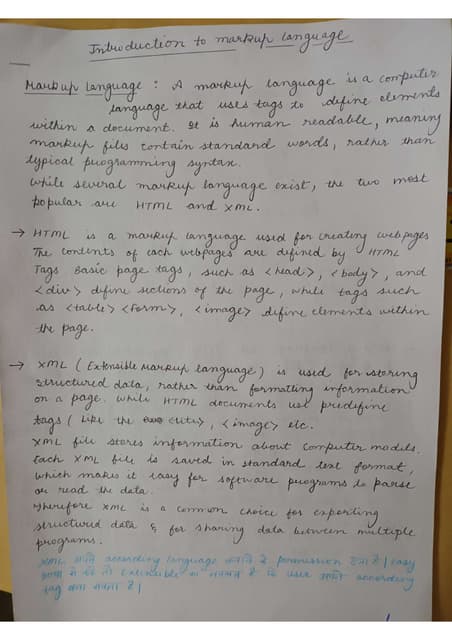 Introduction to markup language
Markup language : A markup language is a computer
language that uses tags to define elements
within a document. It is human readable, meaning
markup files contain standard words, rather than
typical programming syntax.
While several markup language exist, the two most
popular are HTML and XML.
→ HTML is a markup language used for creating webpages
The contents of each webpages are defined by HTML
Tags Basic page tags, such as <head>, <body>, and
<div> define sections of the page, while tags such
as <table> <form>, <image> define elements within
the page.
→ XML ( Extensible Markup language ) is used for storing
structured data, rather than formatting information
on a page. While HTML documents use predefine
tags ( like the <title>, <image> etc.
XML file stores information about computer models.
Each XML file is saved in standard text format,
which makes it easy for software programs to parse
or read the data.
Therefore XML is a common choice for exporting
structured data & for sharing data between multiple
programs.
XML according language permission है | easy
भाषा में Extensible का मतलब है कि user अपने according
tag बना सकता है |